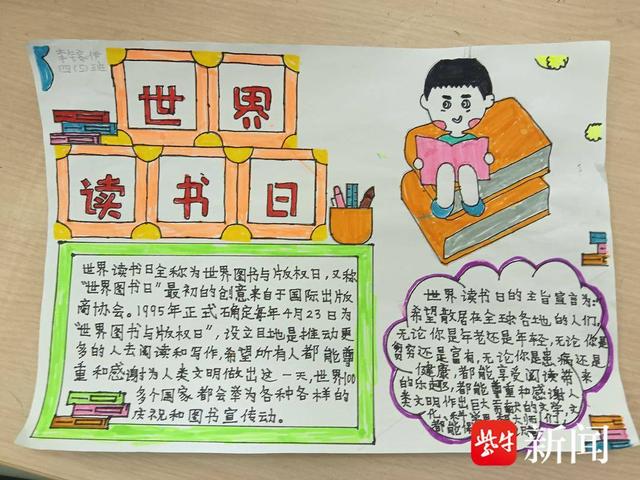 四(5)班
世界
读书日
世界读书日全称为世界图书与版权日，又称
“世界图书日”最初的创意来自于国际出版
商协会。1995年正式确定每年4月23日为
“世界图书与版权日”，设立目地是推动更
多的人去阅读和写作，希望所有人都能尊
重和感谢为人类文明做出这一天，世界100
多个国家都会举为各种各样的
庆祝和图书宣传动。
世界读书日的主旨宣言为：
希望散居在全球各地的人们，
无论你是年老还是年轻，无论你是
贫穷还是富有，无论你是患病还是
健康，都能享受阅读带来
的乐趣，都能尊重和感谢人
类文明作出巨大贡献的文学、文
化、科
都能保
紫牛新闻